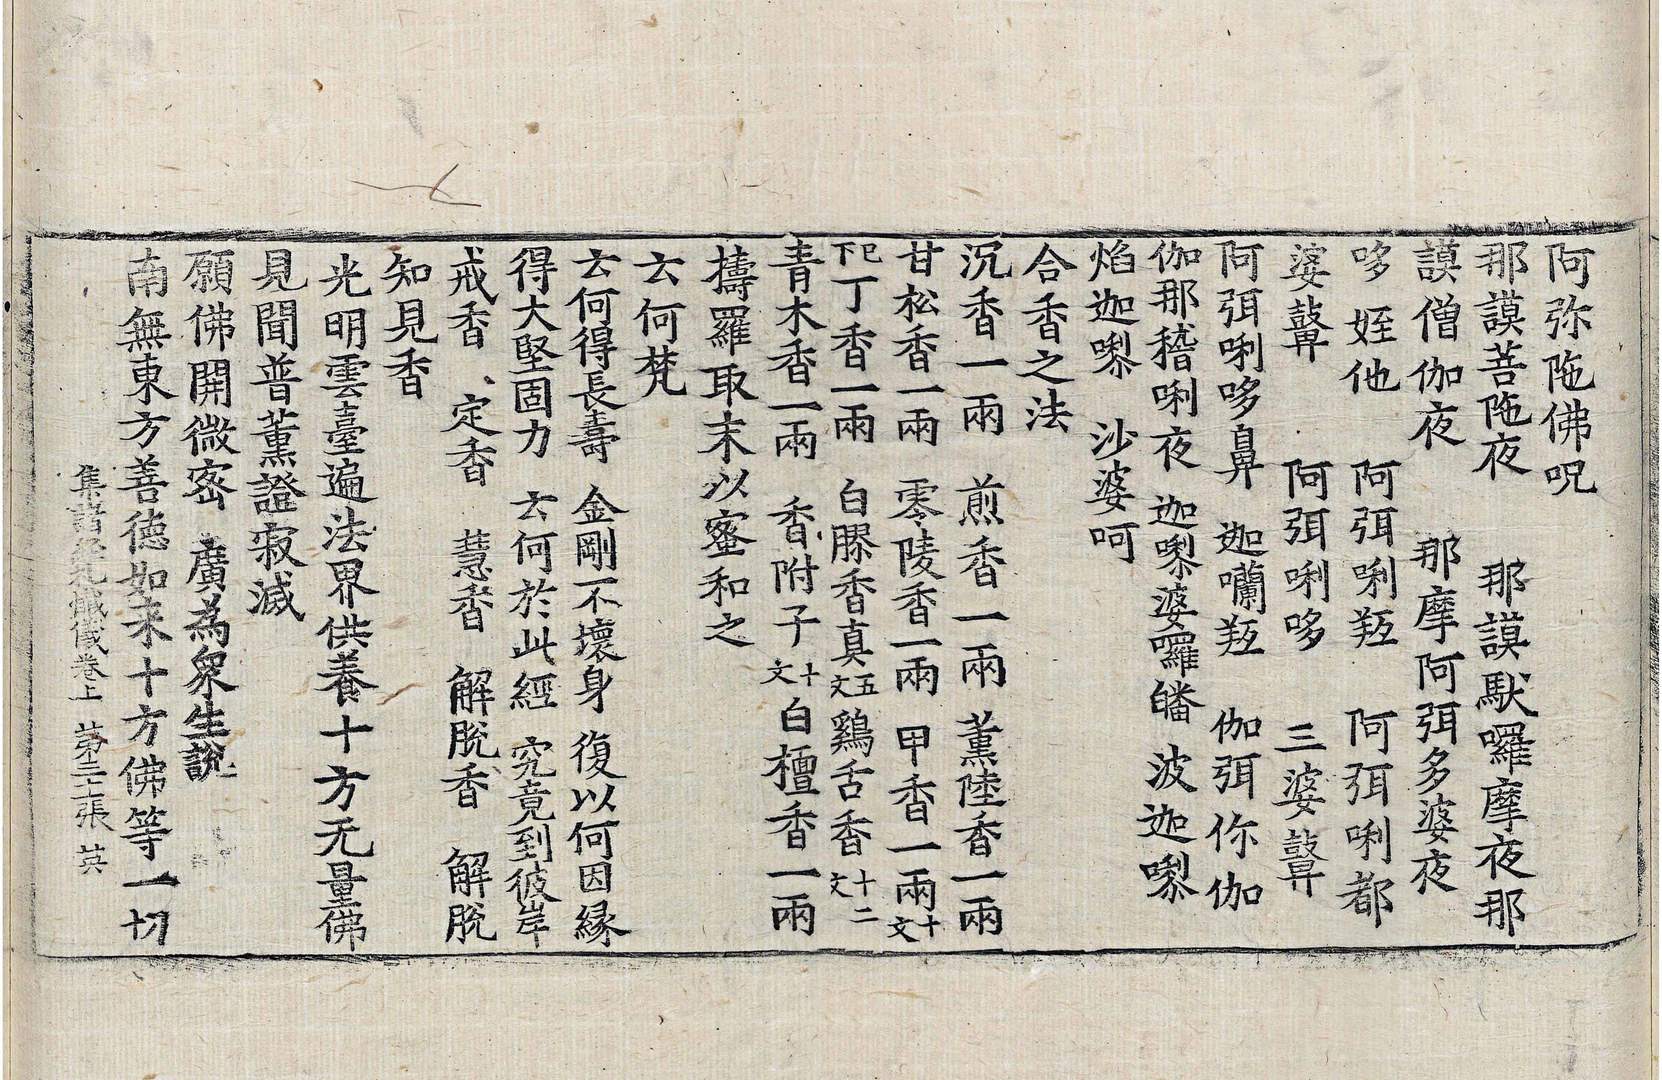 阿弥陁佛呪
那謨菩陁夜 那謨馱囉摩夜那
謨僧伽夜 那摩阿弭多婆夜
哆姪他 阿弭唎羝 阿弭唎都
婆鼙 阿弭唎哆 三婆鼙
阿弭唎哆鼻 迦嚂羝 伽弭你伽
伽那稽唎夜 迦㗚婆囉皤 波迦㗚
焰迦㗚 沙婆呵
合香之法
沉香一兩 煎香一兩 薰陸香一兩
甘松香一兩 零陵香一兩 甲香一兩十文
已下丁香一兩 白膠香真五文鷄舌香十二文
青木香一兩 香附子十文白檀香一兩
擣羅取末以蜜和之
云何梵
云何得長壽 金剛不壞身 復以何因縁
得大堅固力 云何於此經 究竟到彼岸
戒香 定香 慧香 解脫香 解脫
知見香
光明雲臺遍法界供養十方无量佛
見聞普薰證寂滅
願佛開微密 廣為衆生說
南無東方善德如来十方佛等一切
集諸經礼懺儀卷上 第二十張 英